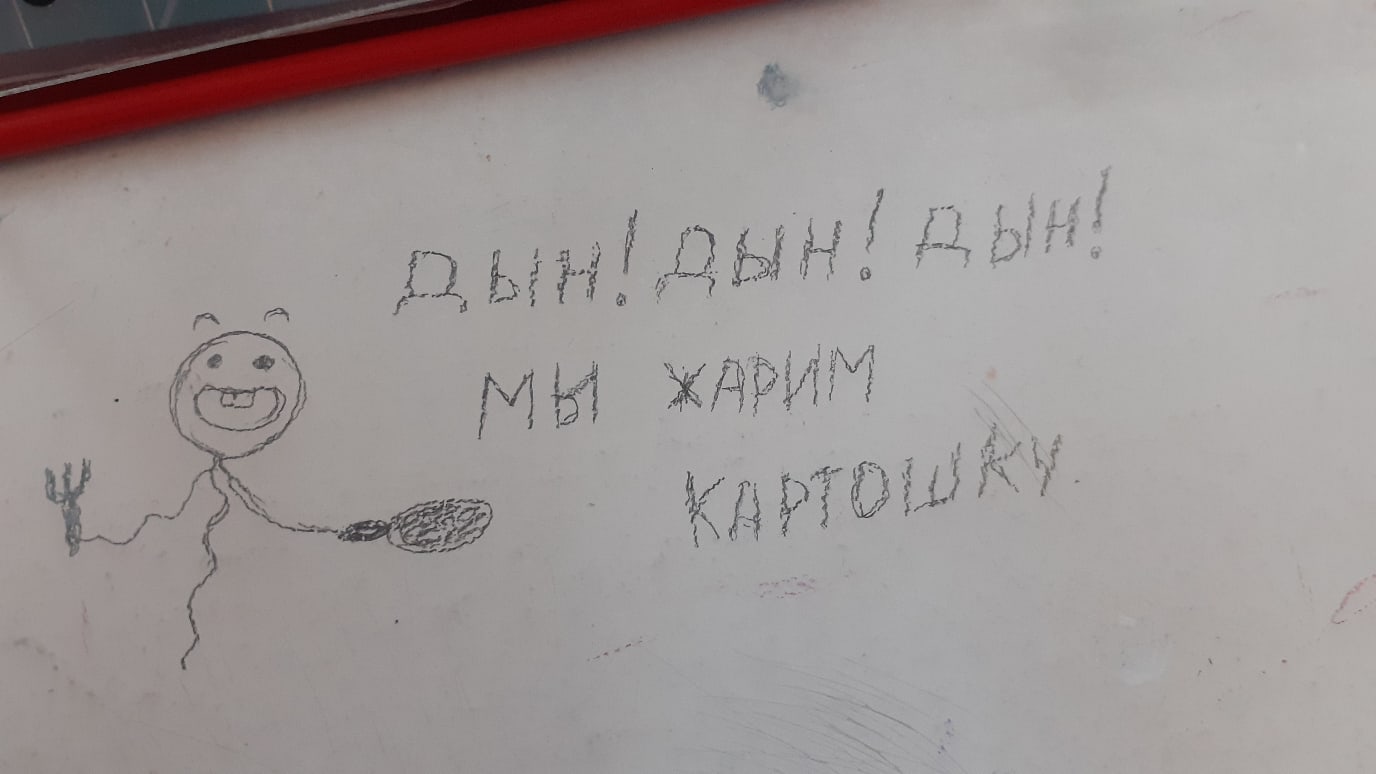 ДЫН! ДЫН! ДЫН!
МЫ ЖАРИМ
КАРТОШКУ